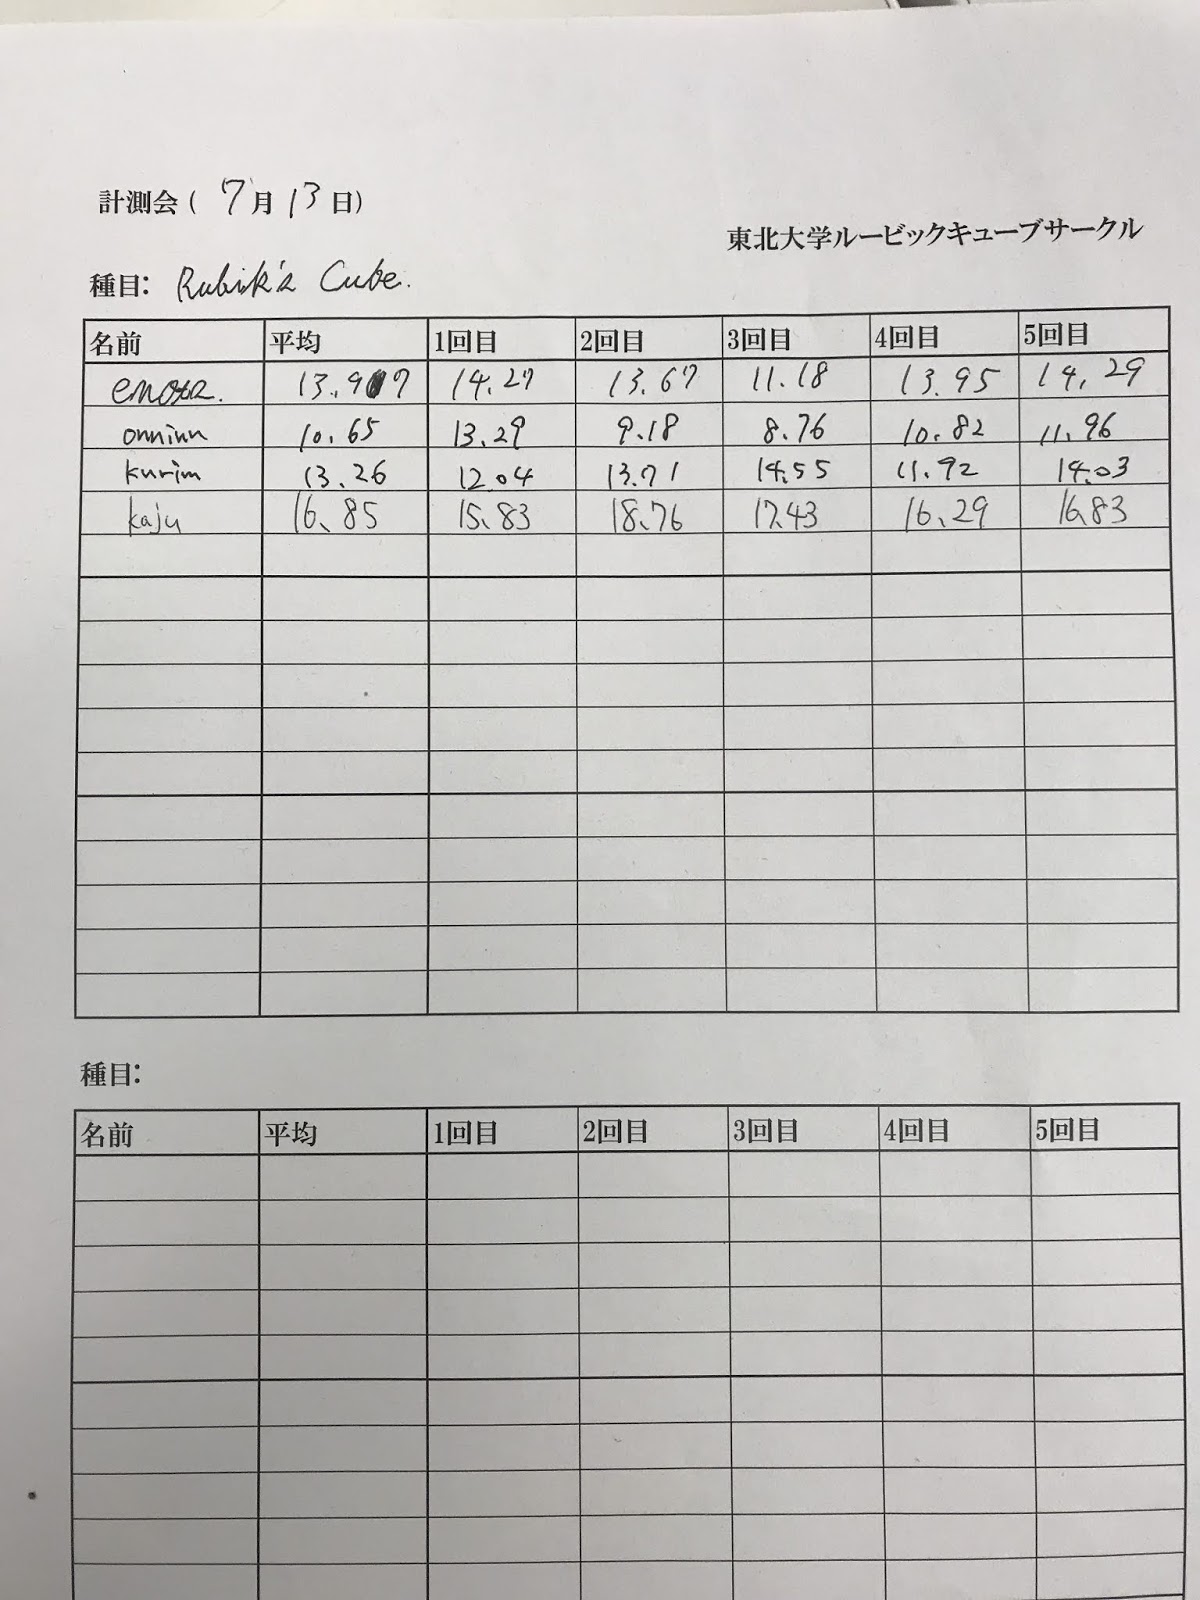 計測会( 7月13日)
東北大学ルービックキューブサークル
種目: Rubik's Cube.
名前 平均 1回目 2回目 3回目 4回目 5回目
13.97 14.27 13.67 11.18 13.95 14.29
onninn 10.65 13.29 9.18 8.76 10.82 11.96
kurim 13.26 12.04 13.71 14.55 11.92 14.03
kaju 16.85 15.83 18.76 17.43 16.29 16.83
種目:
名前 平均 1回目 2回目 3回目 4回目 5回目